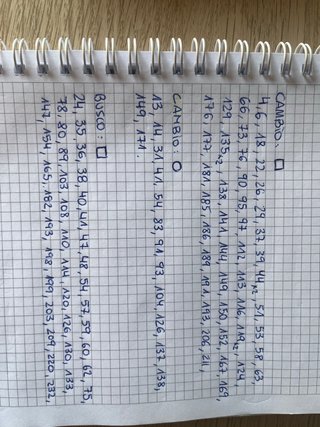 CAMBIO: □
4, 6, 18, 22, 26, 29, 37, 39, 44x2, 51, 53, 58, 63,
66, 73, 76, 90, 95, 97, 112, 113, 116, 119x2, 124
129, 135x2, 138, 141, 144, 149, 150, 152, 167, 169,
176, 177, 181, 185, 186, 189, 191, 193, 206, 211,
CAMBIO ○
13, 14, 31, 41, 54, 83, 91, 93, 104, 126, 137, 138,
149, 171.
BUSCO: □
24, 35, 36, 38, 40, 41, 47, 48, 54, 57, 59, 60, 62, 75,
78, 80, 89, 103, 108, 110, 111, 120, 126, 130, 133,
147, 154, 165, 182, 193, 198, 199, 203, 209, 220, 232,